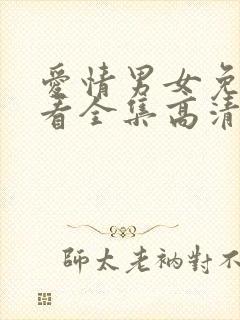 愛情男女免
看全集高清
師太老衲對不